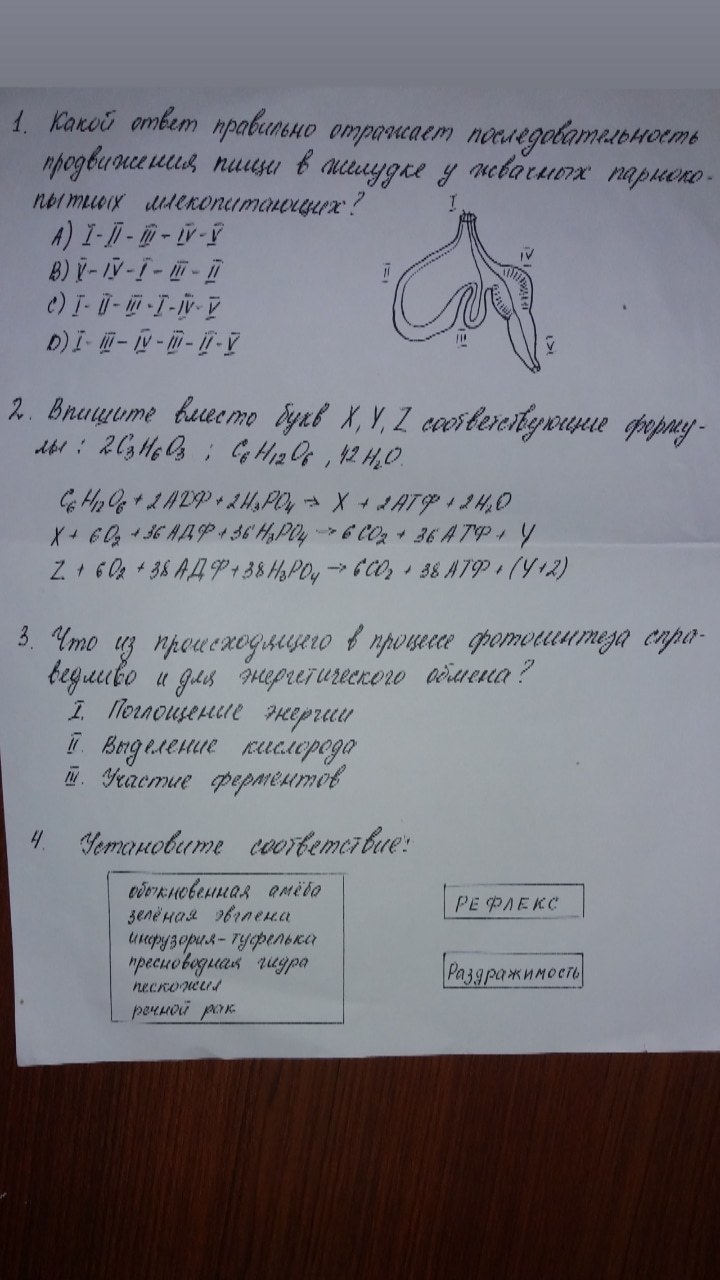 1. Какой ответ правильно отражает последовательность
продвижения пищи в желудке у жвачных парноко-
пытных млекопитающих?
A) I - II - III - IV - V
B) V - IV - I - III - II
C) I - II - III - I - IV - V
D) I - III - IV - III - II - V
I
II
III
IV
V
2. Впишите вместо букв X, Y, Z соответствующие форму-
лы: 2C₃H₆O₃ ; C₆H₁₂O₆ , 42H₂O.
C₆H₁₂O₆ + 2АДФ + 2H₃PO₄ → X + 2АТФ + 2H₂O
X + 6O₂ + 36АДФ + 36H₃PO₄ → 6CO₂ + 36АТФ + Y
Z + 6O₂ + 38АДФ + 38H₃PO₄ → 6CO₂ + 38АТФ + (Y+2)
3. Что из происходящего в процессе фотосинтеза спра-
ведливо и для энергетического обмена?
I. Поглощение энергии
II. Выделение кислорода
III. Участие ферментов
4. Установите соответствие:
обыкновенная амёба
зелёная эвглена
инфузория-туфелька
пресноводная гидра
пескожил
речной рак
РЕФЛЕКС
Раздражимость